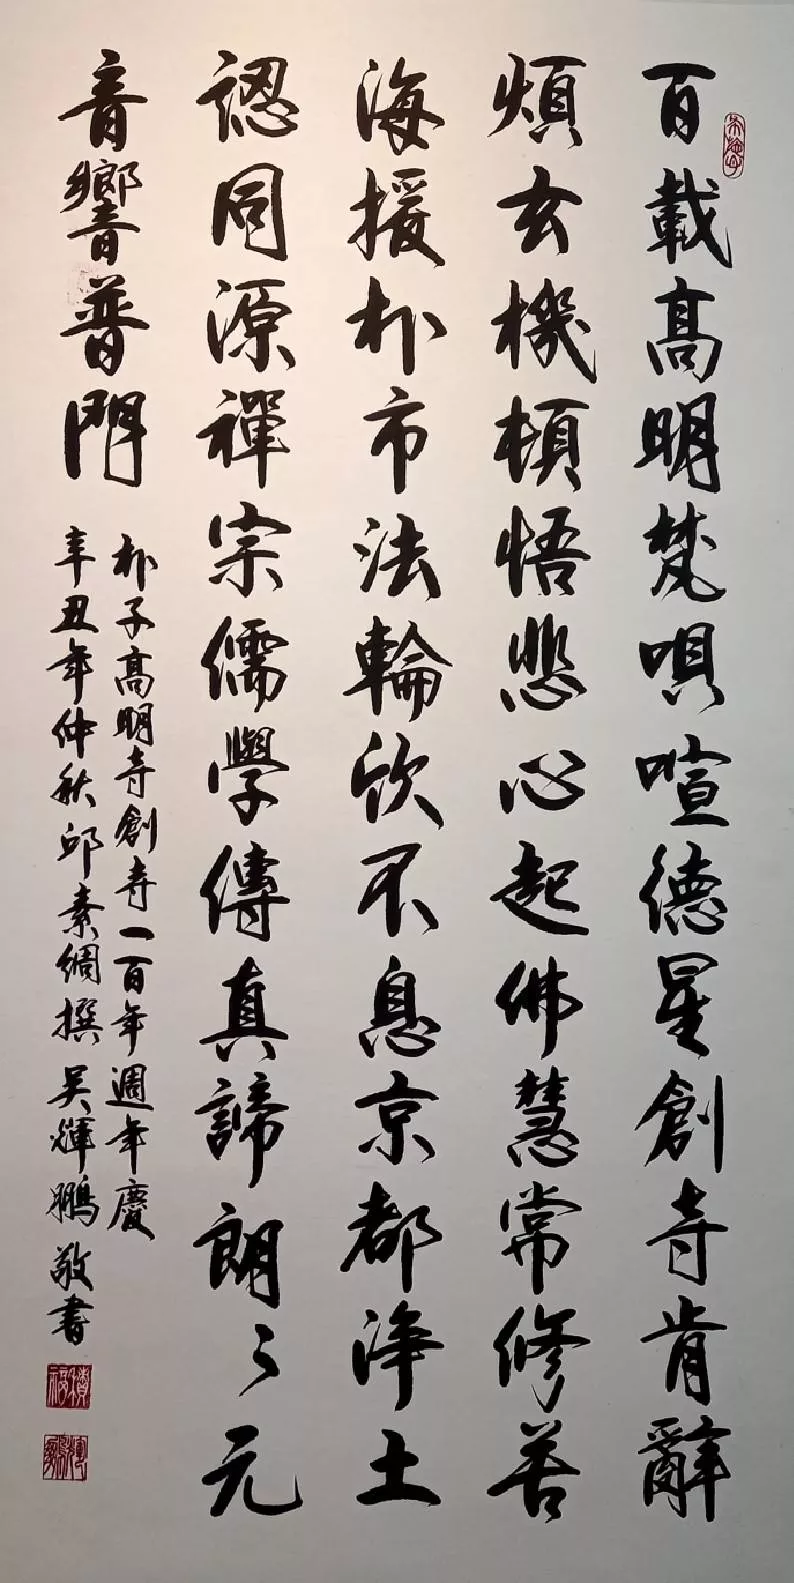 百載高明梵唄喧德星創寺肯辭
煩玄機頓悟悲心起佛慧常修善
海援朴市法輪欣不息京都淨土
認同源禪宗儒學傳真諦朗々元
音響普門
朴子高明寺創寺一百年週年慶
辛丑年仲秋邱素綢撰 吳輝鵬敬書